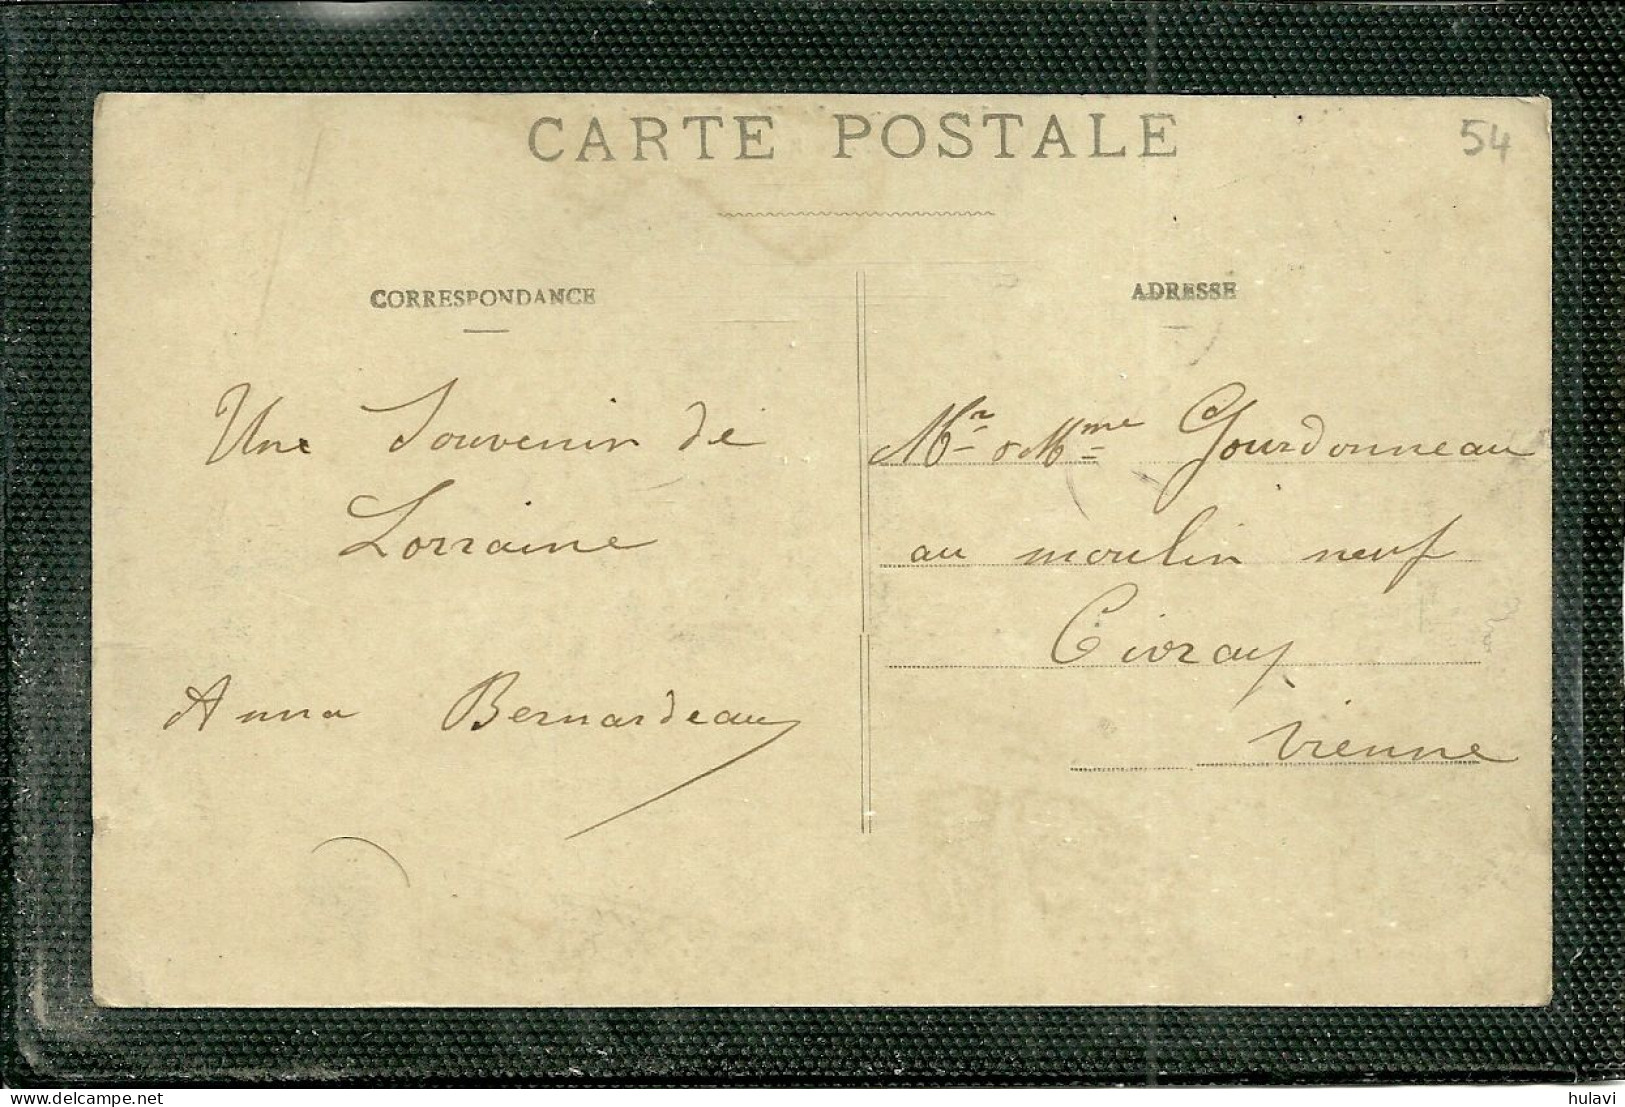 CARTE POSTALE
54
CORRESPONDANCE
Une Souvenir de
Lorraine
Anna Bernardeau
ADRESSE
Mr & Mme Gourdonneau
au moulin neuf
Civray
Vienne
www.delcampe.net
hulavi